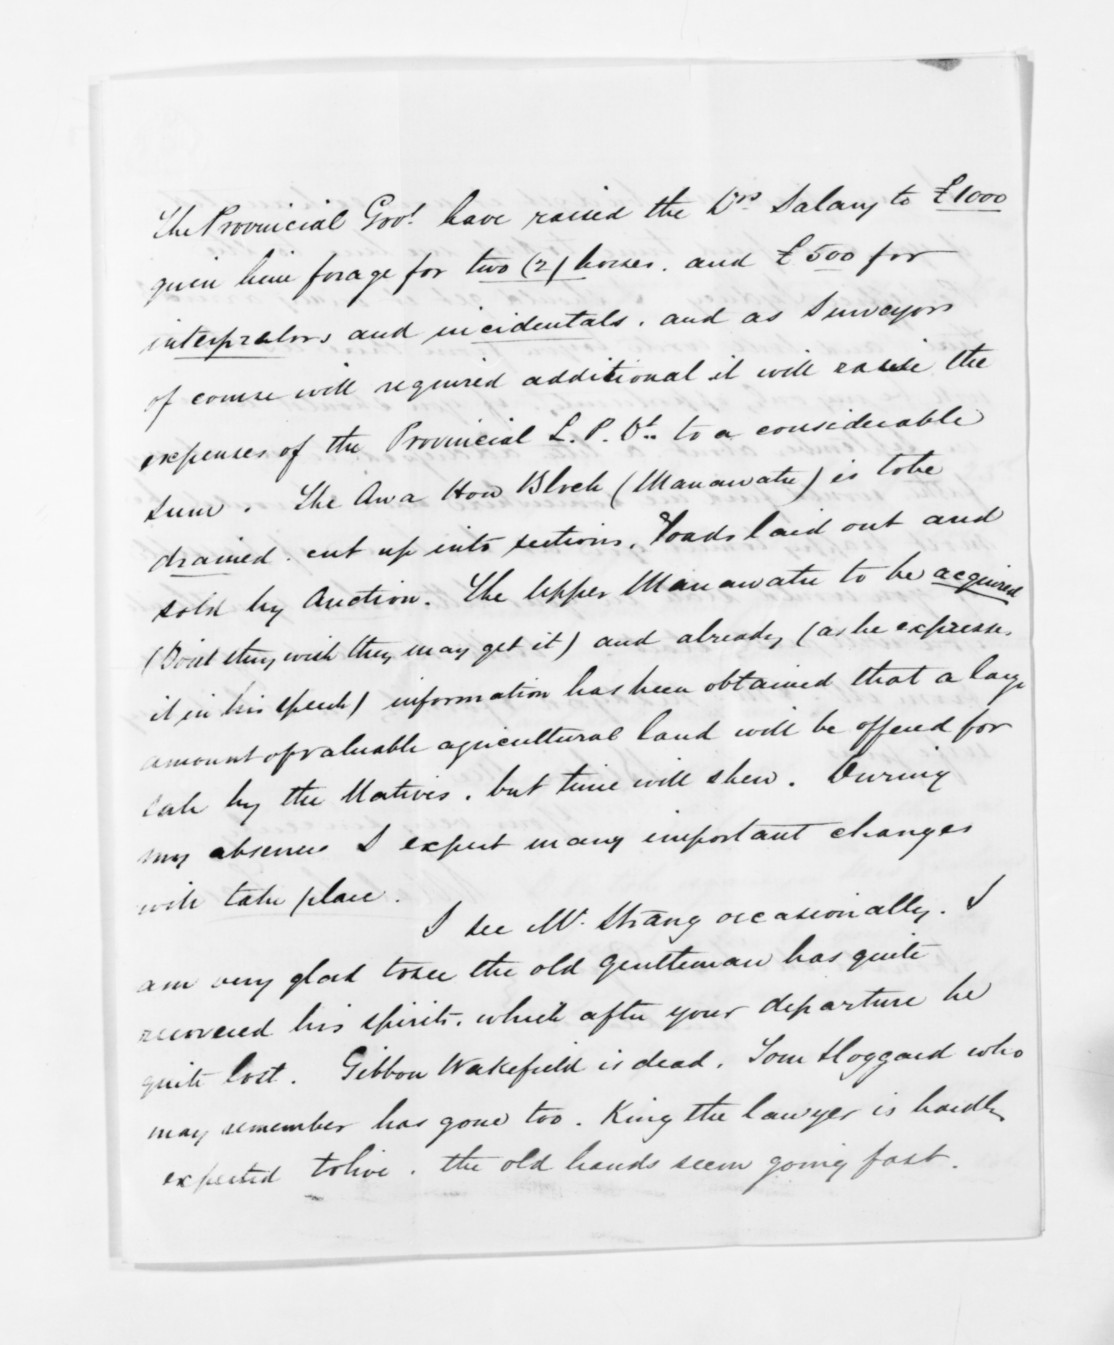 The Provincial Govt. have raised the Drs. Salary to £1000
given him forage for two (2) horses. and £500 for
interpretors and incidentals. and as Surveyors
of course will required additional it will raise the
expenses of the Provincial L. P. Dt. to a considerable
sum. The Awa Hou Block (Manawatu) is to be
drained. cut up into sections, Roads laid out and
sold by Auction. The Upper Manawatu to be acquired
(Dont they wish they may get it) and already (as he expresses
it in his speech) information has been obtained that a large
amount of valuable agricultural land will be offered for
sale by the Natives. but time will shew. During
my absence I expect many important changes
will take place.
I see Mr. Strang occasionally. I
am very glad to see the old gentleman has quite
recovered his spirits. which after your departure he
quite lost. Gibbon Wakefield is dead. Tom Hoggard who
may remember has gone too. King the lawyer is hardly
expected to live. the old hands seem going fast.